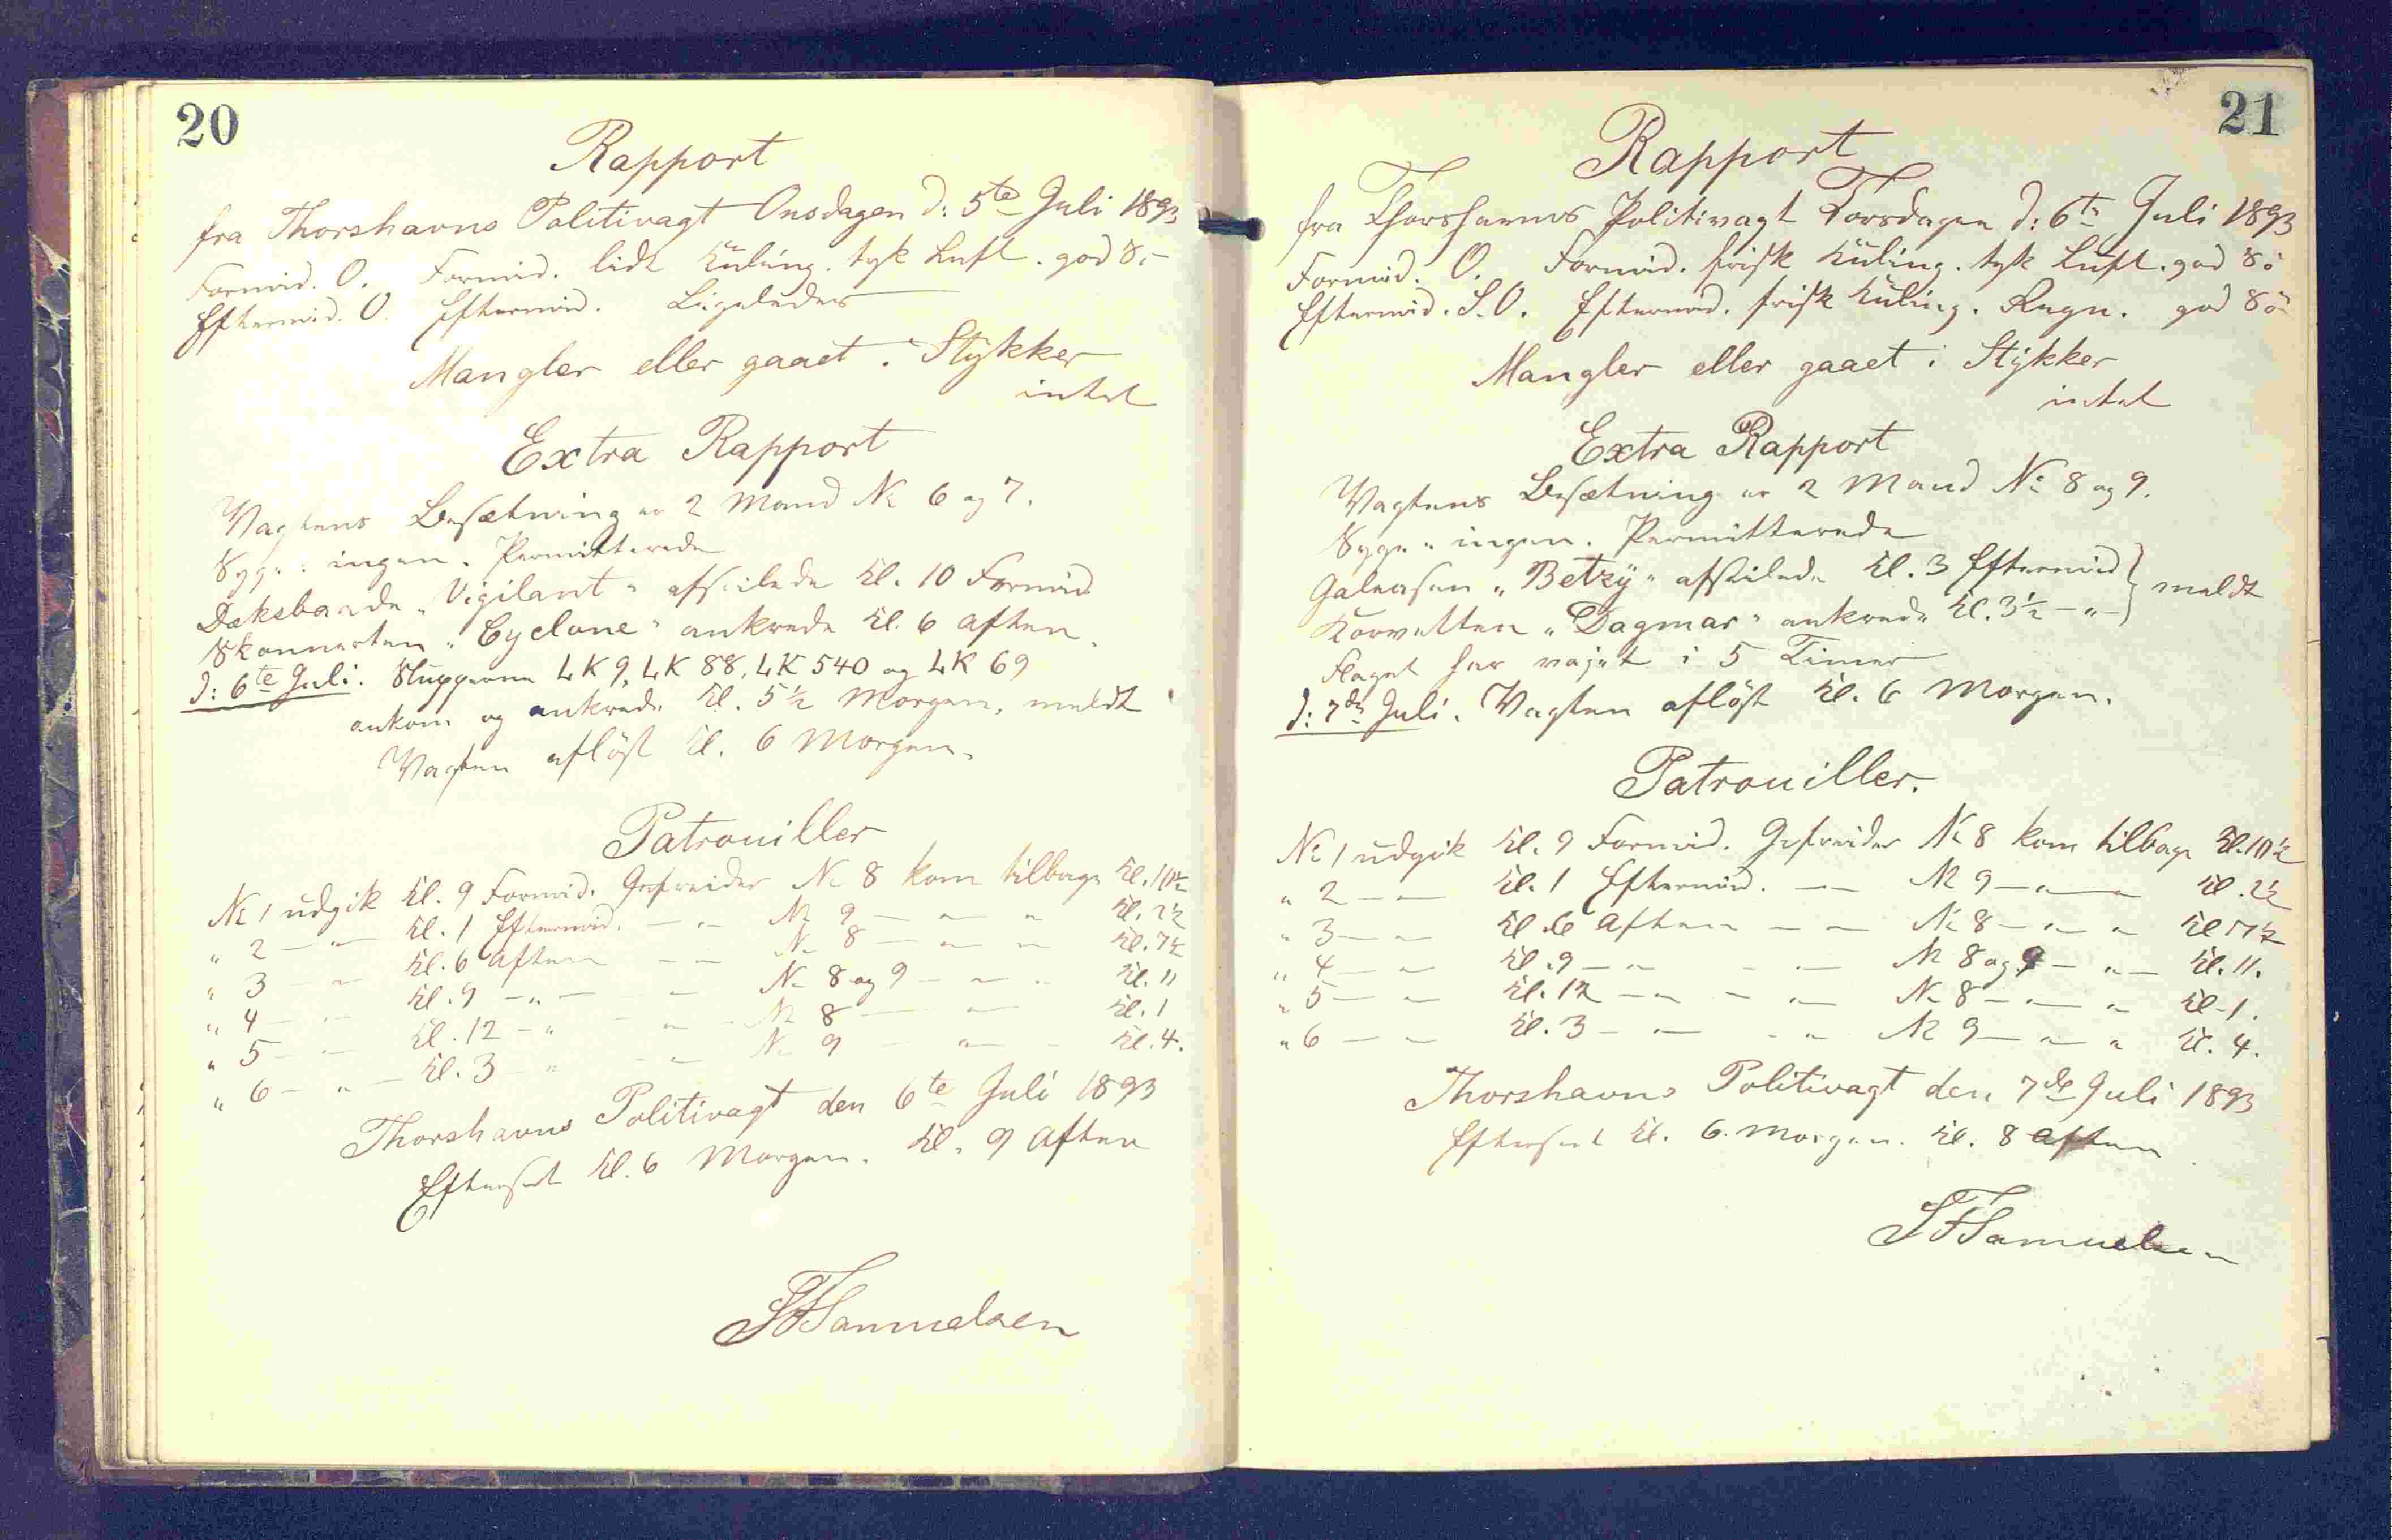 20
Rapport
fra Thorshavns Politivagt Onsdagen d: 5te Juli 1893
Formid. O. Formid. lidt Kuling. tyk Luft. god Sö
Eftermid. O. Eftermid. Ligeledes
Mangler eller gaaet i Stykker
intet
Extra Rapport
Vagtens Besætning er 2 Mand No 6 og 7.
Syge: ingen. Permitterede
Dæksbaade „Vigilant“ afseilede Kl. 10 Formid
Skonnerten „Cyclone“ ankrede Kl. 6 Aften.
d: 6te Juli. Slupperne LK 9, LK 88, LK 540 og LK 69
ankom og ankrede Kl. 5½ Morgen, meldt
Vagten aflöst Kl. 6 Morgen.
Patrouiller
No 1 udgik Kl. 9 Formid. Gefreider No 8 kom tilbage Kl. 10½
„ 2 — „ — Kl. 1 Eftermid. — „ No 9 — „ — „ Kl. 2½
„ 3 — „ Kl. 6 Aften — „ — No 8 — „ — „ Kl. 7½
„ 4 — „ — Kl. 9 — „ — — „ No 8 og 9 — „ — „ Kl. 11
„ 5 — „ — Kl. 12 — „ — „ — No 8 — „ — Kl. 1
„ 6 — „ — Kl. 3 — „ — „ No 9 — „ — Kl. 4.
Thorshavns Politivagt den 6te Juli 1893
Efterseet Kl. 6 Morgen. Kl. 9 Aften
SFSamuelsen
21
Rapport
fra Thorshavns Politivagt Torsdagen d: 6te Juli 1893
Formid. O. Formid. frisk Kuling. tyk Luft. god Sö
Eftermid. S.O. Eftermid. frisk Kuling. Regn. god Sö
Mangler eller gaaet i Stykker
intet
Extra Rapport
Vagtens Besætning er 2 Mand No 8 og 9.
Syge „ ingen. Permitterede
Galeasen „Betzy“ afseilede Kl. 3 Eftermid } meldt
Korvetten „Dagmar“ ankrede Kl. 3½ — „ —
Flaget har vajet i 5 Timer
d: 7de Juli. Vagten aflöst Kl. 6 Morgen.
Patrouiller.
No 1 udgik Kl. 9 Formid. Gefreider No 8 kom tilbage Kl. 10½
„ 2 — „ — Kl. 1 Eftermid. — „ — No 9 — „ — „ Kl. 2½
„ 3 — „ Kl. 6 Aften — „ No 8 — „ — „ Kl 7½
„ 4 — „ Kl. 9 — „ — „ — No 8 og 9 — „ — Kl. 11.
„ 5 — „ Kl. 12 — „ — „ — No 8 — „ — „ Kl. 1.
„ 6 — „ Kl. 3 — „ — — „ No 9 — „ — „ Kl. 4.
Thorshavns Politivagt den 7de Juli 1893
Efterseet Kl. 6. Morgen. Kl. 8 Aften
SFSamuelsen